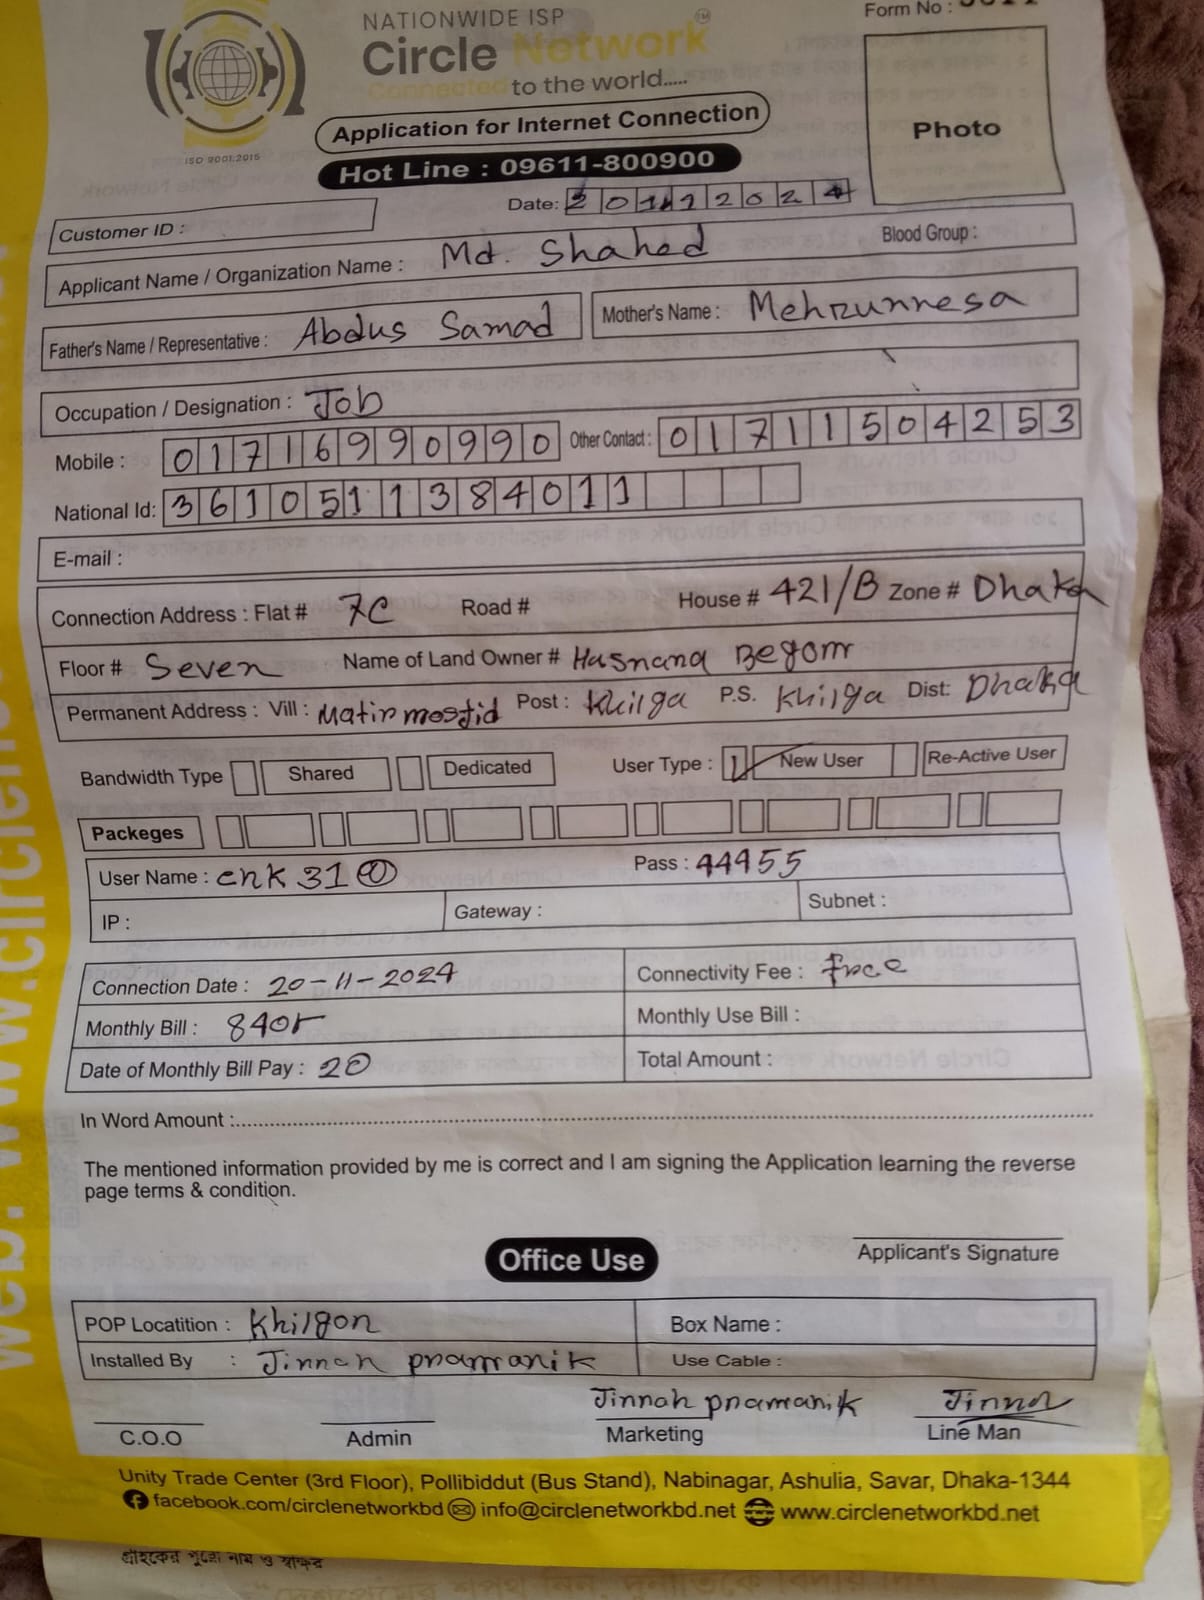 NATIONWIDE ISP
Form No :
Circle Network TM
Connected to the world.....
ISO 9001:2015
Application for Internet Connection
Photo
Hot Line : 09611-800900
Date: 20112024
Customer ID :
Applicant Name / Organization Name : Md. Shahed Blood Group :
Father's Name / Representative : Abdus Samad Mother's Name : Mehrunnesa
Occupation / Designation : Job
Mobile : 01716990990 Other Contact : 01711504253
National Id: 3610511384011
E-mail :
Connection Address : Flat # 7C Road # House # 421/B Zone # Dhaka
Floor # Seven Name of Land Owner # Hasnana Begom
Permanent Address : Vill : Matir mostid Post : Khilga P.S. Khilga Dist: Dhaka
Bandwidth Type Shared Dedicated User Type : New User Re-Active User
Packeges
User Name : cnk 310 Pass : 44455
IP : Gateway : Subnet :
Connection Date : 20-11-2024 Connectivity Fee : free
Monthly Bill : 840 Monthly Use Bill :
Date of Monthly Bill Pay : 20 Total Amount :
In Word Amount :
The mentioned information provided by me is correct and I am signing the Application learning the reverse
page terms & condition.
Applicant's Signature
Office Use
POP Locatition : Khilgon Box Name :
Installed By : Jinnah pramanik Use Cable :
Jinnah pramanik Jinnah
C.O.O Admin Marketing Line Man
Unity Trade Center (3rd Floor), Pollibiddut (Bus Stand), Nabinagar, Ashulia, Savar, Dhaka-1344
facebook.com/circlenetworkbd info@circlenetworkbd.net www.circlenetworkbd.net
গ্রাহকের পুরো নাম ও স্বাক্ষর